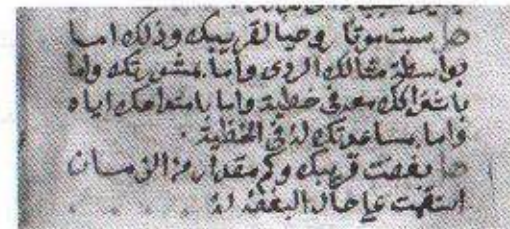 هل سببت موتًا روحيا لقريبك وذلك اما
بواسطة مثالك الردى واما بمشورتك واما
باشتراكك معه في خطية واما بامتداحك اياه
واما بمساعدتك له في الخطية .
هل بغضت قريبك وكم مقدار من الزمان
استقمت على حال البغضة له